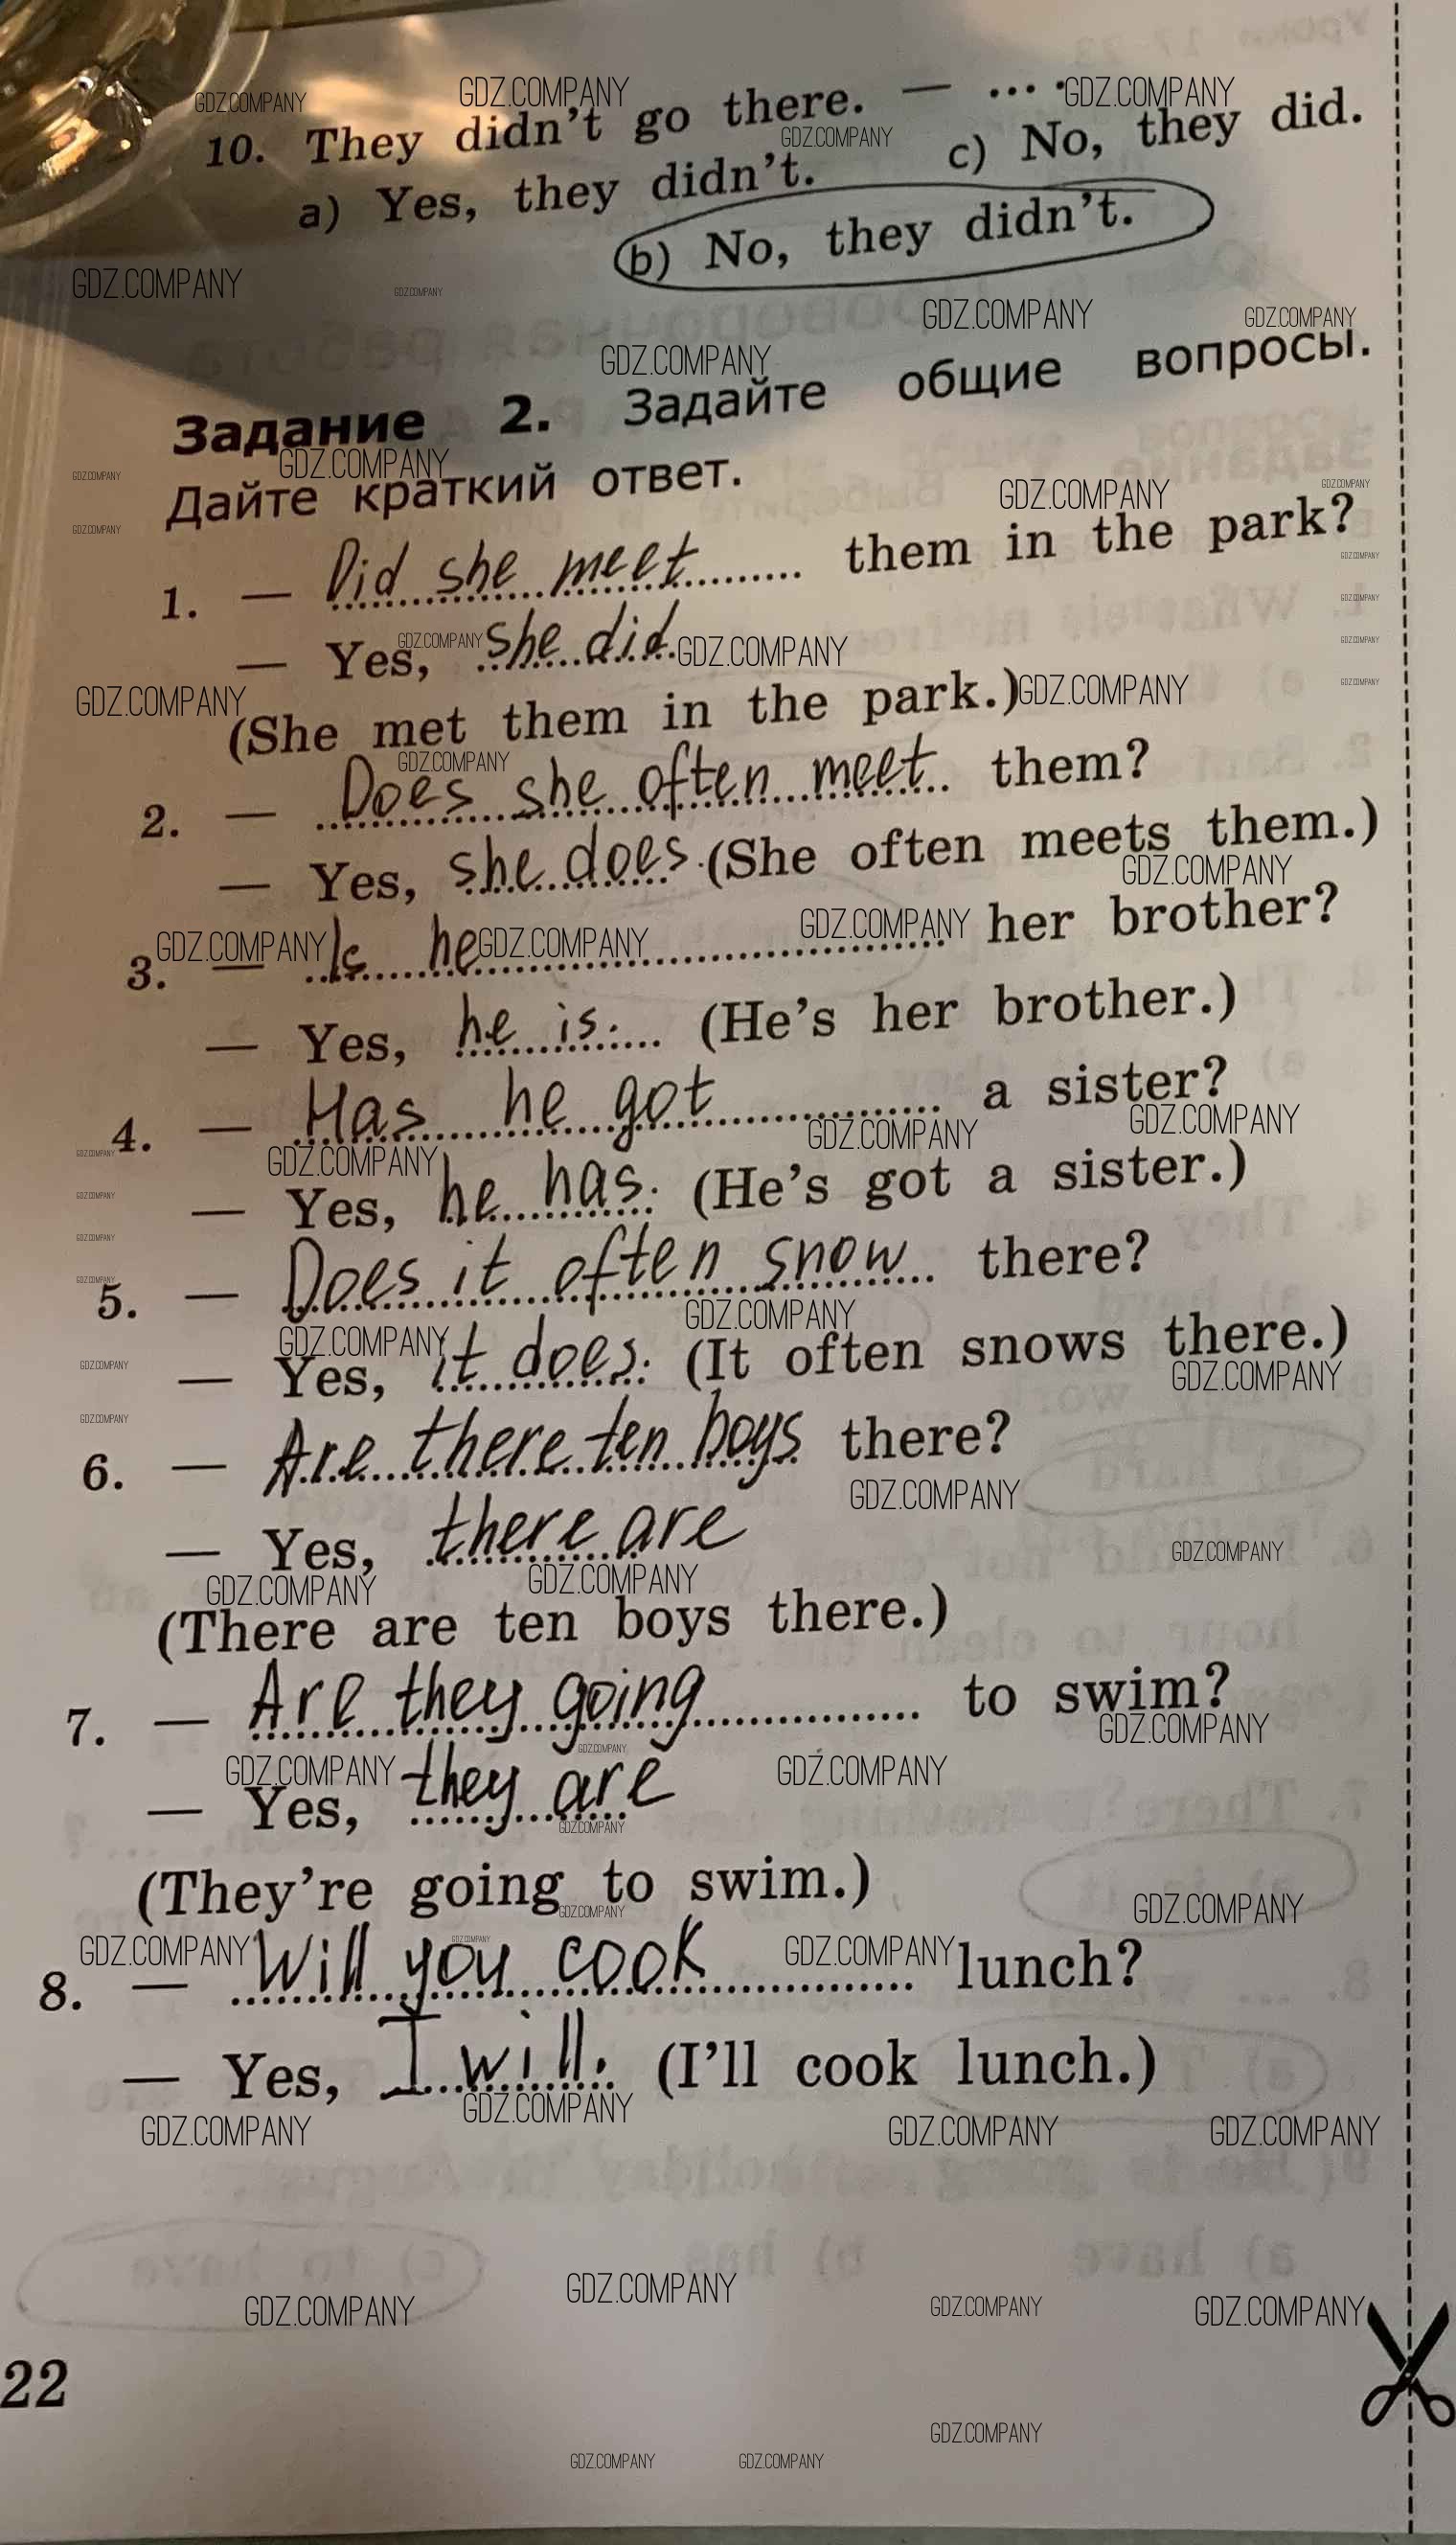 10. They didn't go there. — ... .
a) Yes, they didn't. c) No, they did.
b) No, they didn't.
Задание 2. Задайте общие вопросы.
Дайте краткий ответ.
1. — Did she meet them in the park?
— Yes, she did.
(She met them in the park.)
2. — Does she often meet them?
— Yes, she does. (She often meets them.)
3. — Is he her brother?
— Yes, he is. (He's her brother.)
4. — Has he got a sister?
— Yes, he has. (He's got a sister.)
5. — Does it often snow there?
— Yes, it does. (It often snows there.)
6. — Are there ten boys there?
— Yes, there are
(There are ten boys there.)
7. — Are they going to swim?
— Yes, they are
(They're going to swim.)
8. — Will you cook lunch?
— Yes, I will. (I'll cook lunch.)
22
GDZ.COMPANY